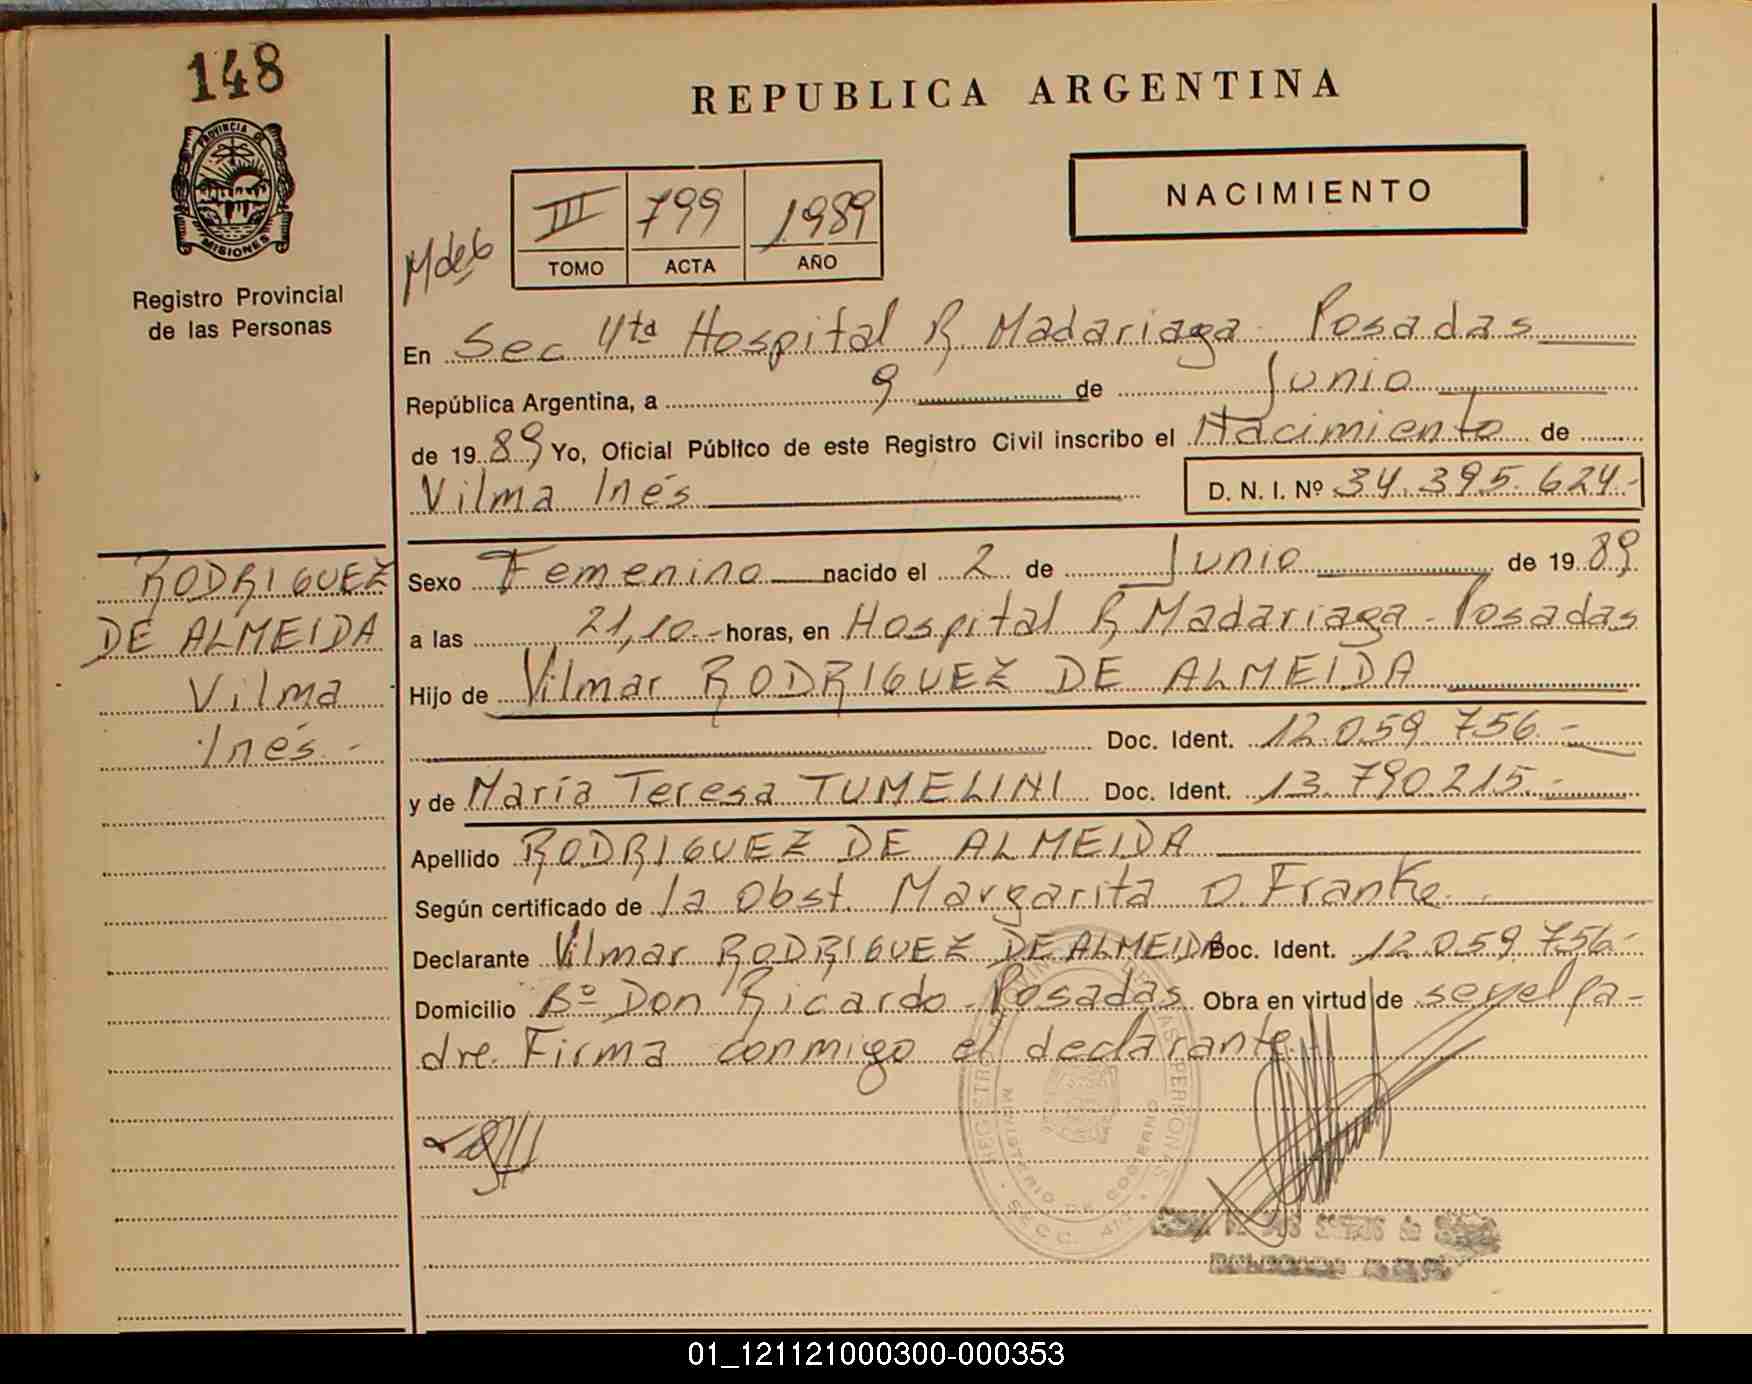 148
PROVINCIA DE
MISIONES
Registro Provincial
de las Personas
REPUBLICA ARGENTINA
NACIMIENTO
III 799 1989
TOMO ACTA AÑO
En Sec 4ta Hospital R. Madariaga - Posadas
República Argentina, a 9 de Junio
de 1989 Yo, Oficial Público de este Registro Civil inscribo el Nacimiento de
Vilma Inés D. N. I. Nº 34.395.624.-
Sexo Femenino nacido el 2 de Junio de 1989
a las 21,10.- horas, en Hospital R Madariaga - Posadas
Hijo de Vilmar RODRIGUEZ DE ALMEIDA
Doc. Ident. 12.059.756.-
y de María Teresa TUMELINI Doc. Ident. 13.790.215.-
Apellido RODRIGUEZ DE ALMEIDA
Según certificado de la Obst. Margarita O. Franke
Declarante Vilmar RODRIGUEZ DE ALMEIDA Doc. Ident. 12.059.756.-
Domicilio Bº Don Ricardo - Posadas Obra en virtud de ser el pa-
dre. Firma conmigo el declarante.
RODRIGUEZ
DE ALMEIDA
Vilma
Inés.-
MINISTERIO DE GOBIERNO
01_121121000300-000353